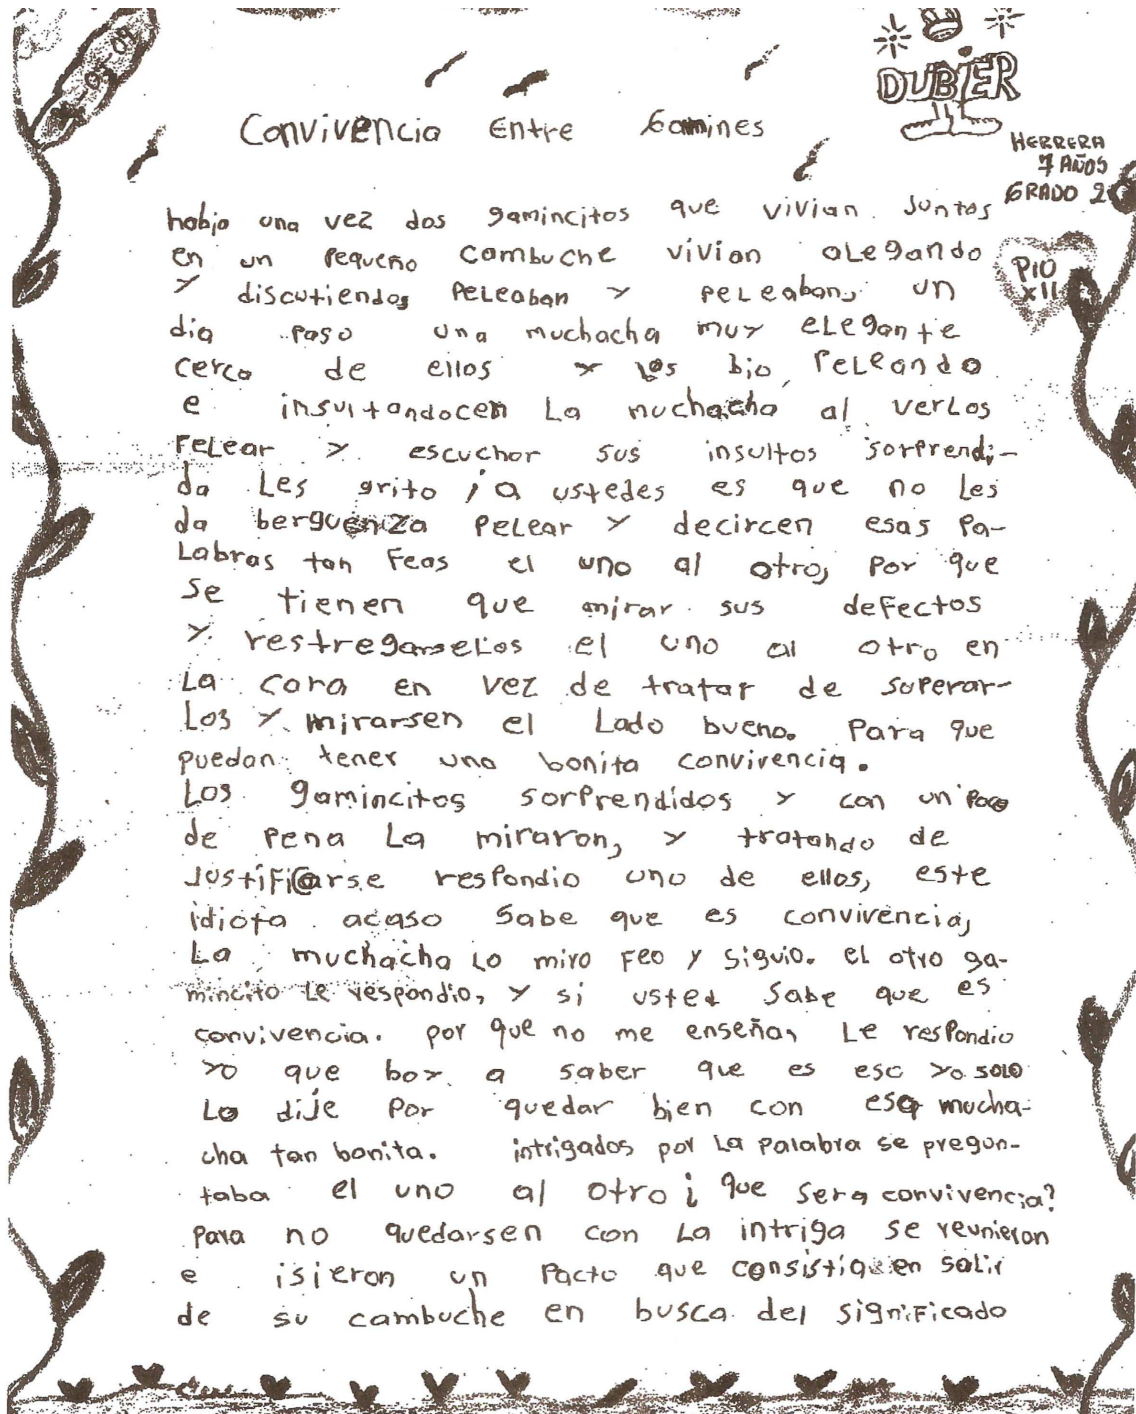 DUBIER
Convivencia Entre Gamines
HERRERA
7 AÑOS
GRADO 2
PIO
XII
habia una vez dos gamincitos que vivian juntos
en un Pequeño cambuche vivian alegando
y discutiendo, Peleaban y peleaban, un
dia paso una muchacha muy elegante
cerca de ellos y los bio peleando
e insultandocen La muchacha al verLos
PeLear y escuchar sus insultos sorprendi-
da Les grito ¡a ustedes es que no Les
da berguenza Pelear y decircen esas Pa-
Labras tan Feas el uno al otro, por que
se tienen que mirar sus defectos
y restregarseLos el uno al otro en
La cara en vez de tratar de superar-
Los y mirarsen el Lado bueno. Para que
puedan tener una bonita convivencia.
Los gamincitos sorprendidos y con un poco
de pena La miraron, y tratando de
Justificarse respondio uno de ellos, este
idiota acaso sabe que es convivencia,
La muchacha Lo miro Feo y siguio. el otro ga-
mincito Le respondio, y si usted sabe que es
convivencia. por que no me enseña, Le respondio
yo que boy a saber que es eso yo solo
Lo dije por quedar bien con esa mucha-
cha tan bonita. intrigados por La palabra se pregun-
taba el uno al otro ¿ que sera convivencia?
Para no quedarsen con La intriga se reunieron
e isieron un Pacto que consistia en salir
de su cambuche en busca del significado